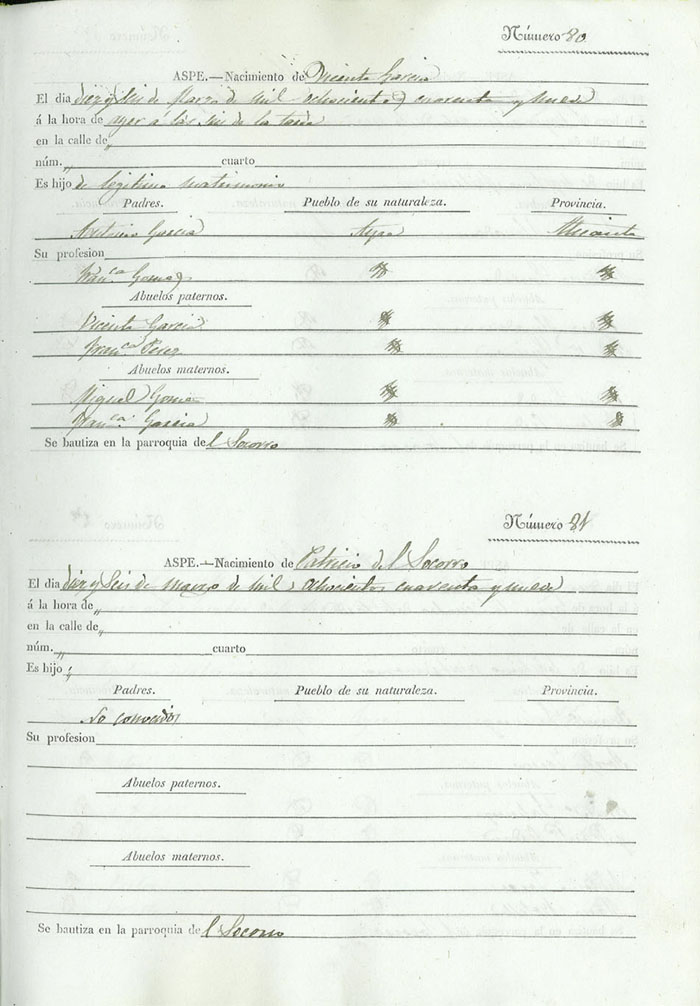 Número 80
ASPE.—Nacimiento de Vicente Garcia
El dia diez y seis de Marzo de mil ochocientos cuarenta y nueve
á la hora de ayer á las seis de la tarde
en la calle de „
núm. „ cuarto
Es hijo de legitimo matrimonio
Padres. Pueblo de su naturaleza. Provincia.
Antonio Garcia Aspe Alicante
Su profesion
Fran.ca Gomez
Abuelos paternos.
Vicente Garcia
Fran.ca Perez
Abuelos maternos.
Miguel Gomez
Fran.ca Garcia
Se bautiza en la parroquia del Socorro
Número 81
ASPE.—Nacimiento de Patricio del Socorro
El dia diez y Seis de marzo de mil ochocientos cuarenta y nueve
á la hora de „
en la calle de „
núm. „ cuarto
Es hijo „
Padres. Pueblo de su naturaleza. Provincia.
No conocidos
Su profesion
Abuelos paternos.
Abuelos maternos.
Se bautiza en la parroquia del Socorro